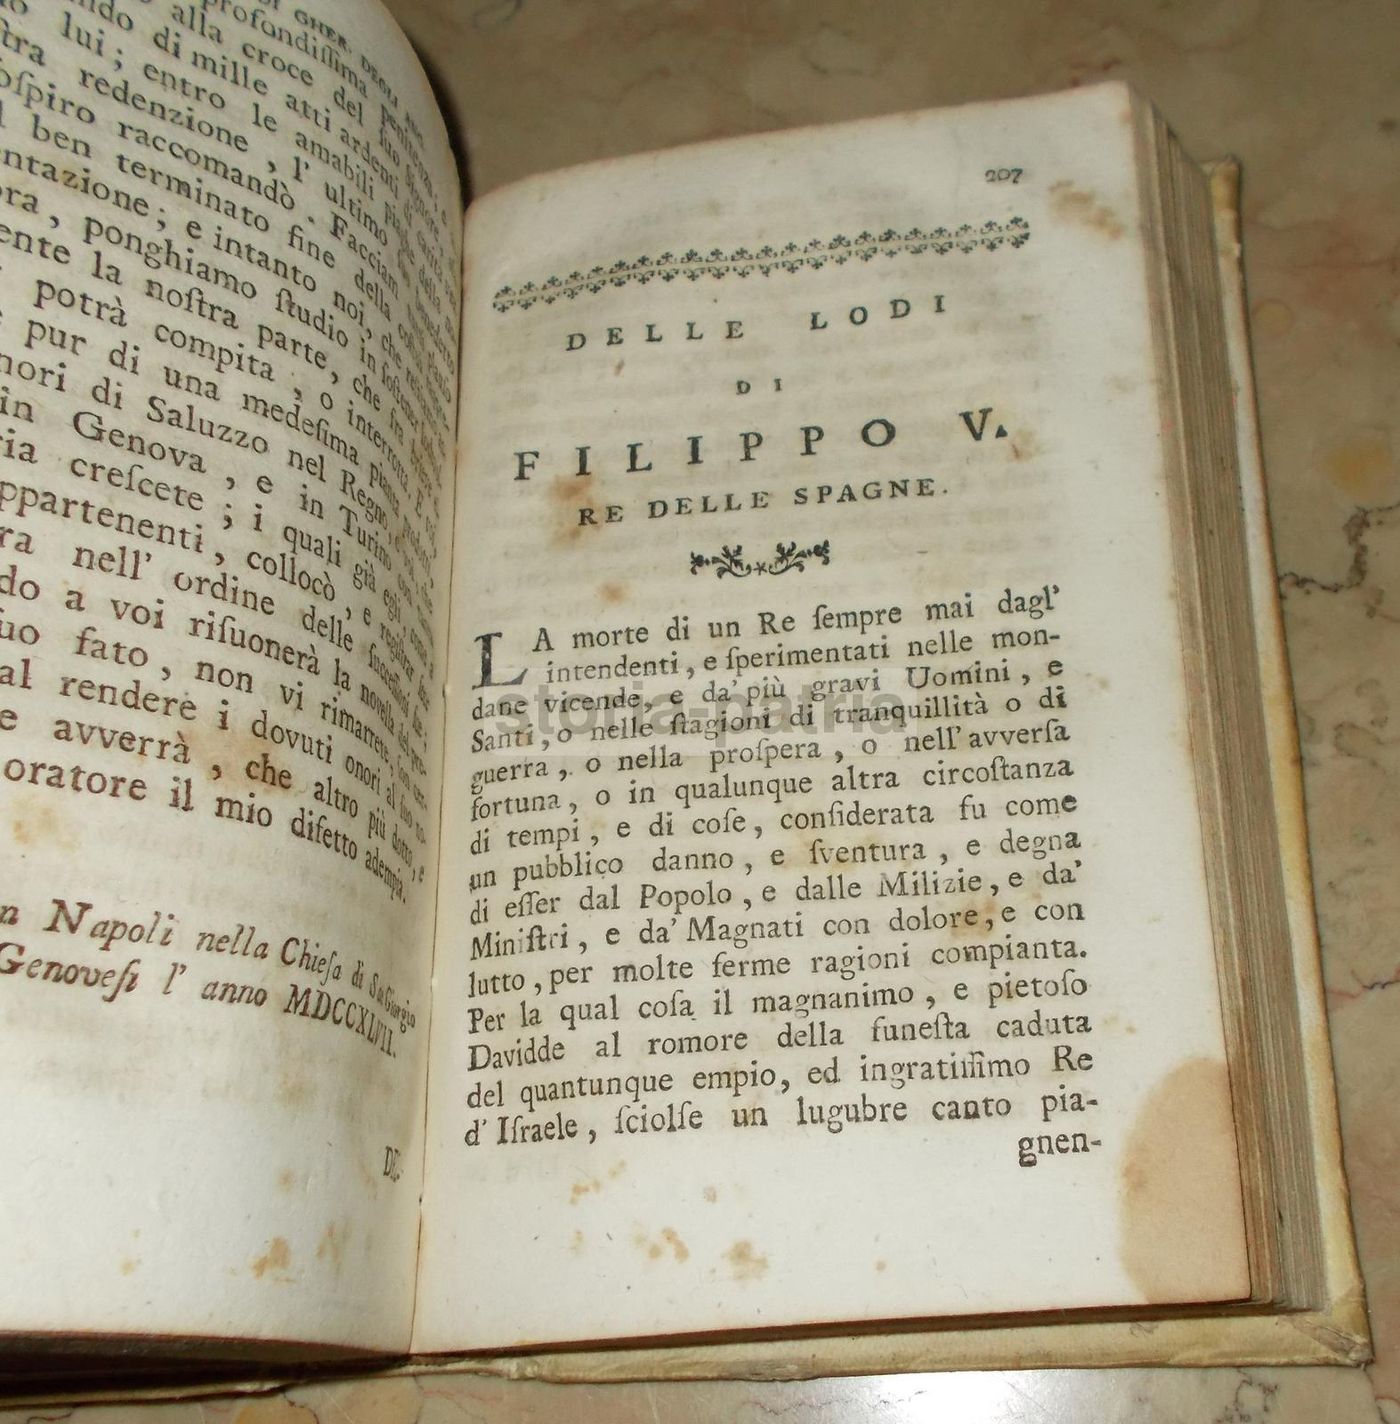 DI GHER. DEGLI
profondissima penitenza, e
ando alla croce del suo Signore,
lui; di mille atti ardenti di carità
stra entro le amabili piaghe della
redenzione, l' ultimo
ospiro raccomandò. Facciam
l ben terminato fine della
entazione; e intanto noi, che
ora, ponghiamo ſtudio in ſoſtener
ente la noſtra parte, che fra
potrà compita, o interrotta. E
e pur di una medeſima pianta
nori di Saluzzo nel Regno, e
in Genova, e in Turino con
ria creſcete; i quali già egli, come
ppartenenti, collocò, e
ra nell' ordine delle ſucceſſioni
do a voi riſuonerà la novella del
uo fato, non vi rimarrete,
al rendere i dovuti onori al ſuo
e avverrà, che altro più dotto, e
oratore il mio difetto adempia.
n Napoli nella Chieſa di S. Giorgio
Genoveſi l' anno MDCCXLVII.
DE-
207
DELLE LODI
DI
FILIPPO V.
RE DELLE SPAGNE.
LA morte di un Re ſempre mai dagl'
intendenti, e ſperimentati nelle mon-
dane vicende, e da' più gravi Uomini, e
Santi, o nelle ſtagioni di tranquillità o di
guerra, o nella proſpera, o nell' avverſa
fortuna, o in qualunque altra circoſtanza
di tempi, e di coſe, conſiderata fu come
un pubblico danno, e ſventura, e degna
di eſſer dal Popolo, e dalle Milizie, e da'
Miniſtri, e da' Magnati con dolore, e con
lutto, per molte ferme ragioni compianta.
Per la qual coſa il magnanimo, e pietoſo
Davidde al romore della funeſta caduta
del quantunque empio, ed ingratiſſimo Re
d' Iſraele, ſciolſe un lugubre canto pia-
gnen-
storia-patria